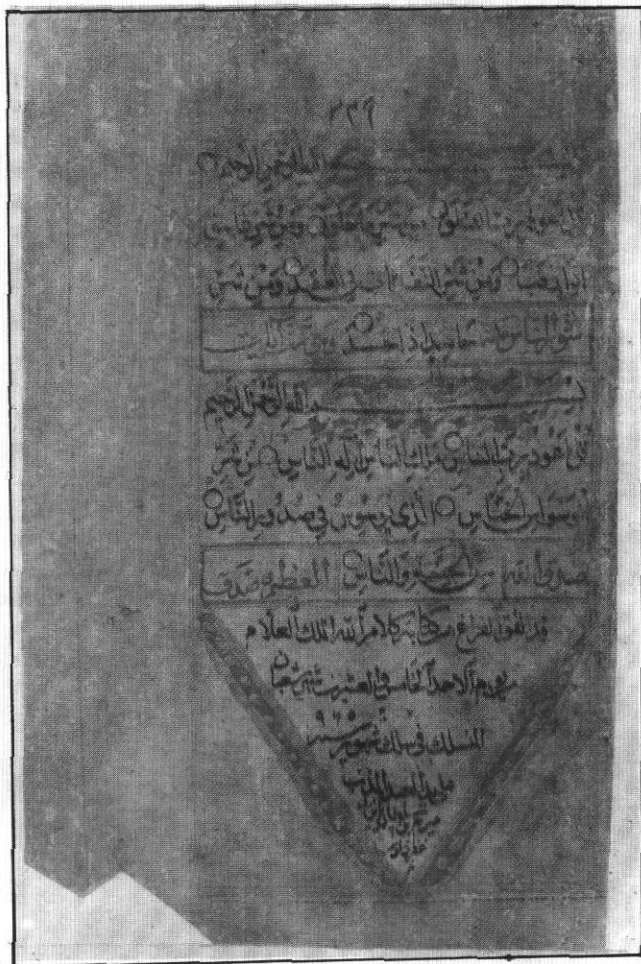 ٣٢٩
بسم الله الرحمن الرحيم
قل اعوذ برب الفلق من شر ما خلق ومن شر غاسق
اذا وقب ومن شر النفاثات في العقد ومن شر
سورة الناس حاسد اذا حسد
بسم الله الرحمن الرحيم
قل اعوذ برب الناس ملك الناس اله الناس من شر
الوسواس الخناس الذي يوسوس في صدور الناس
صدق الله من الجنة والناس العظيم صدق
قد اتفق الفراغ من كتابة كلام الله الملك العلام
يوم الاحد الخامس والعشرين شهر شعبان
المنسلك في سلك شهور سنة ٩٦٥